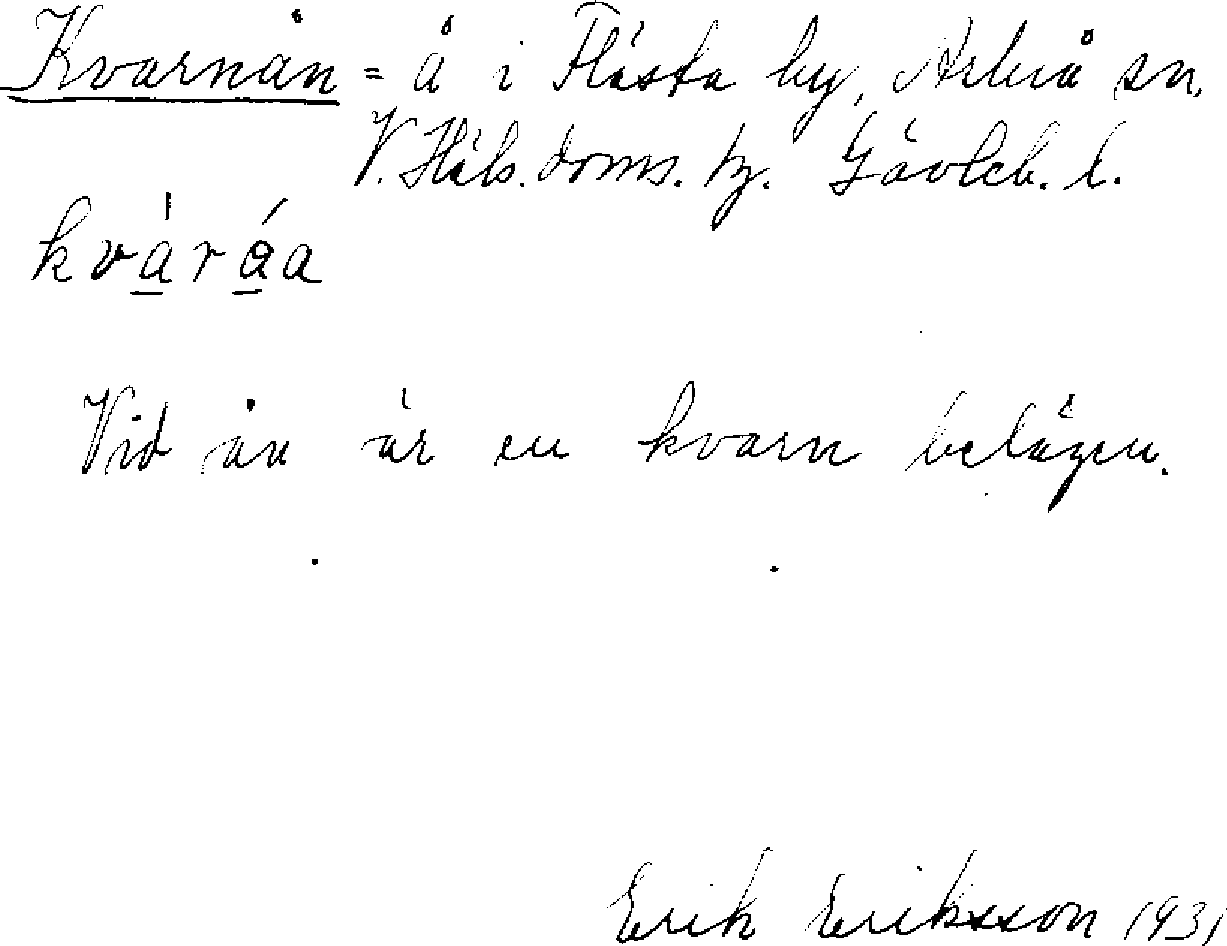 Kvarnån = å i Flästa by, Arbrå sn.
V. Häls. doms. tg. Gävleb. l.
kváråa
Vid ån är en kvarn belägen.
Erik Eriksson 1931